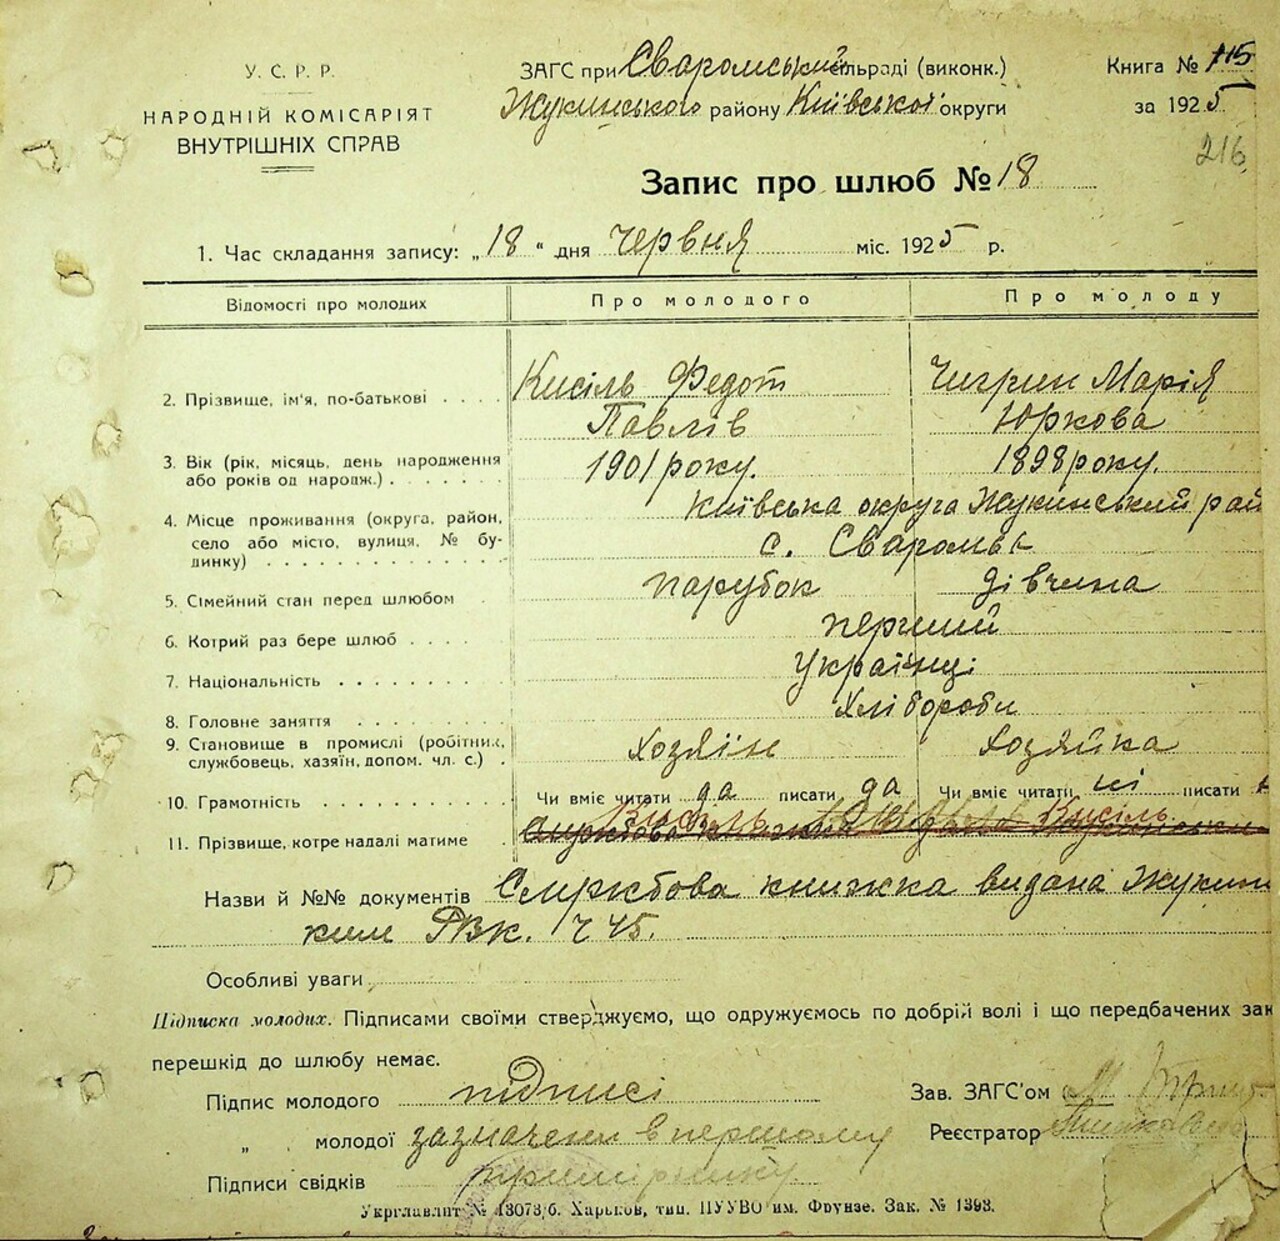 У. С. Р. Р.
НАРОДНІЙ КОМІСАРІЯТ
ВНУТРІШНІХ СПРАВ
ЗАГС при Сваромській сільраді (виконк.)
Жукинського району Київської округи
Книга № 115
за 1925
216
Запис про шлюб № 18
1. Час складання запису: „18“ дня червня міс. 1925 р.
Відомості про молодих Про молодого Про молоду
2. Прізвище, ім'я, по-батькові . . . . Кисіль Федот Чигрин Марія
Павлів Юркова
3. Вік (рік, місяць, день народження або років од народж.) 1901 року. 1898 року.
4. Місце проживання (округа, район, село або місто, вулиця, № будинку) Київська округа Жукинський рай
с. Сваромьє
5. Сімейний стан перед шлюбом парубок дівчина
6. Котрий раз бере шлюб . . . . перший
7. Національність . . . . . . . . Українці
8. Головне заняття . . . . . . . . Хлібороби
9. Становище в промислі (робітник, службовець, хазяїн, допом. чл. с.) . Хозяїн Хозяйка
10. Грамотність . . . . . . . . . . . Чи вміє читати да писати да Чи вміє читати ні писати
11. Прізвище, котре надалі матиме . Кисіль Кисіль
Назви й №№ документів Службова книжка видана Жукин
ким РВК. Ч 45.
Особливі уваги
Підписка молодих. Підписами своїми стверджуємо, що одружуємось по добрій волі і що передбачених зак
перешкід до шлюбу немає.
Підпис молодого підписі
„ молодої зазначени в першому
Підписи свідків примірнику.
Зав. ЗАГС'ом
Реєстратор
Укрглавліт № 13073/б. Харьков, тип. ПУУВО им. Фрунзе. Зак. № 1393.